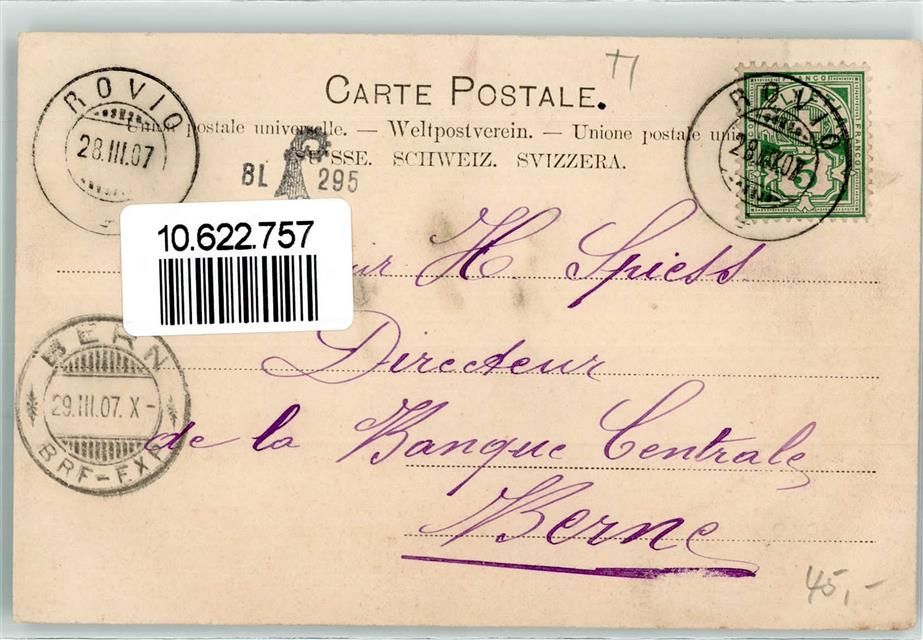 CARTE POSTALE.
Union postale universelle. — Weltpostverein. — Unione postale
SUISSE. SCHWEIZ. SVIZZERA.
ROVIO
28.III.07
ROVIO
28.III.07
HELVETIA
FRANCO
FRANCO
5
BL 295
10.622.757
H Spiess
Directeur
de la Banque Centrale
Berne
BERN
29.III.07. X-
BRF-EXP.
45,-